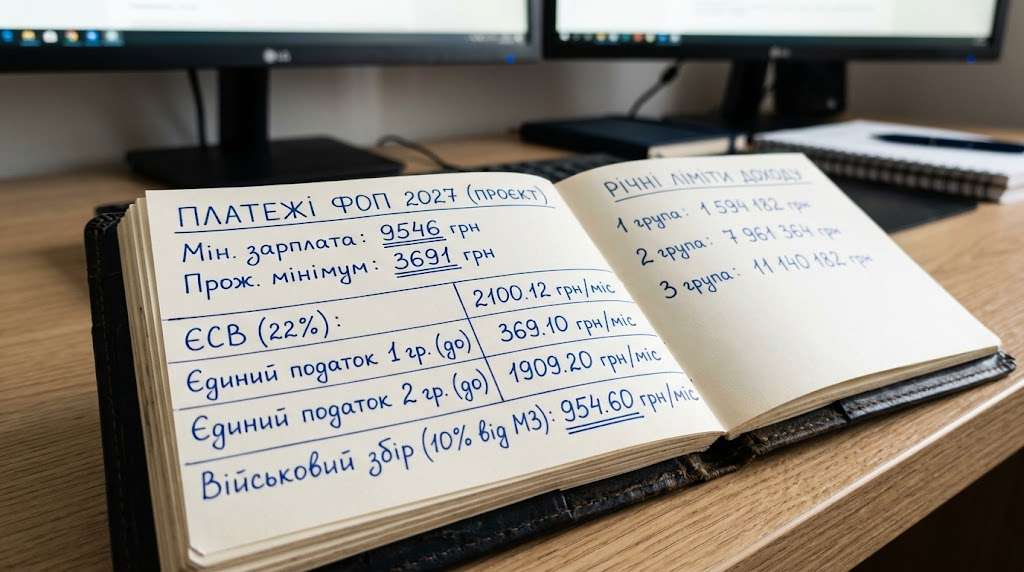 ПЛАТЕЖІ ФОП 2027 (ПРОЄКТ)
Мін. зарплата: 9546 грн
Прож. мінімум: 3691 грн
ЄСВ (22%): 2100.12 грн/міс
Єдиний податок 1 гр. (до) 369.10 грн/міс
Єдиний податок 2 гр. (до) 1909.20 грн/міс
Військовий збір (10% від МЗ): 954.60 грн/міс
РІЧНІ ЛІМІТИ ДОХОДУ
1 група: 1 594 182 грн
2 група: 7 961 364 грн
3 група: 11 140 182 грн
LG